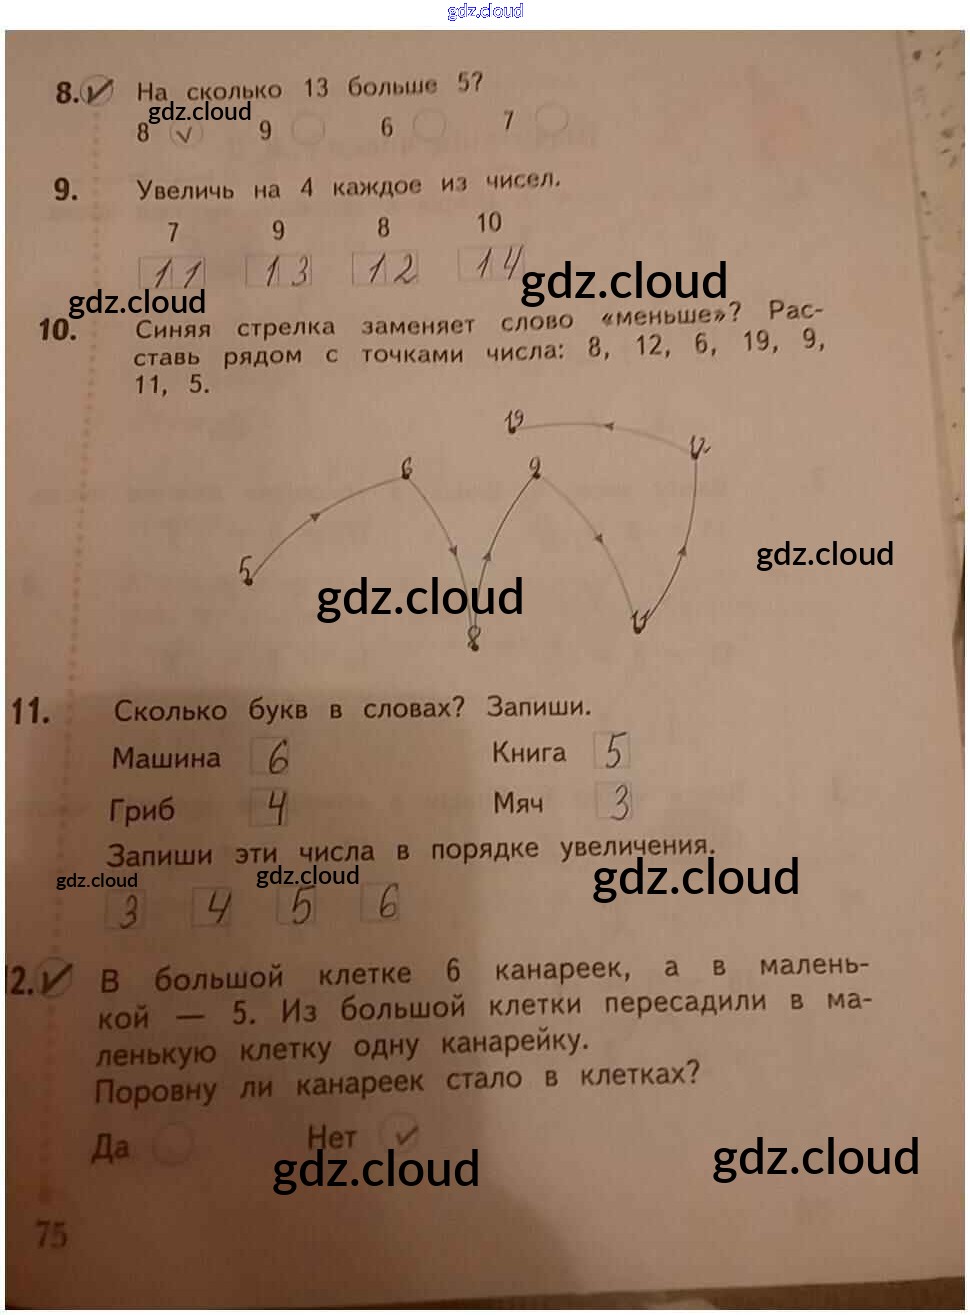 gdz.cloud
8. ✓ На сколько 13 больше 5?
gdz.cloud
8 ✓ 9 6 7
9. Увеличь на 4 каждое из чисел.
7 9 8 10
11 13 12 14
gdz.cloud
gdz.cloud
10. Синяя стрелка заменяет слово «меньше»? Рас-
ставь рядом с точками числа: 8, 12, 6, 19, 9,
11, 5.
19
12
6 9
gdz.cloud
5
gdz.cloud
11
8
11. Сколько букв в словах? Запиши.
Машина 6 Книга 5
Гриб 4 Мяч 3
Запиши эти числа в порядке увеличения.
gdz.cloud gdz.cloud gdz.cloud
3 4 5 6
12. ✓ В большой клетке 6 канареек, а в малень-
кой — 5. Из большой клетки пересадили в ма-
ленькую клетку одну канарейку.
Поровну ли канареек стало в клетках?
Да Нет ✓
gdz.cloud gdz.cloud
75